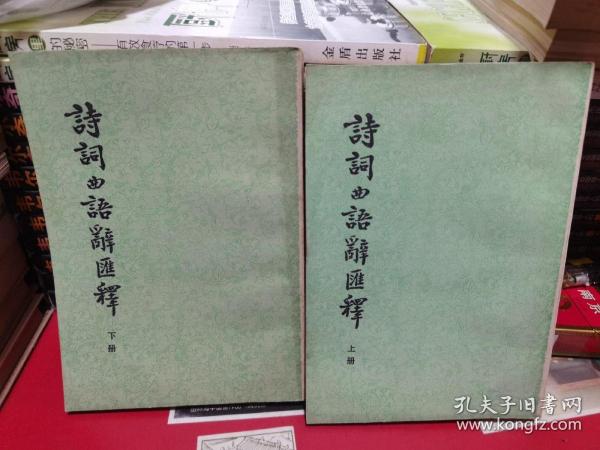 詩詞曲語辭匯釋
下册
詩詞曲語辭匯釋
上册
金盾出版社
孔夫子旧书网
www.kongfz.com